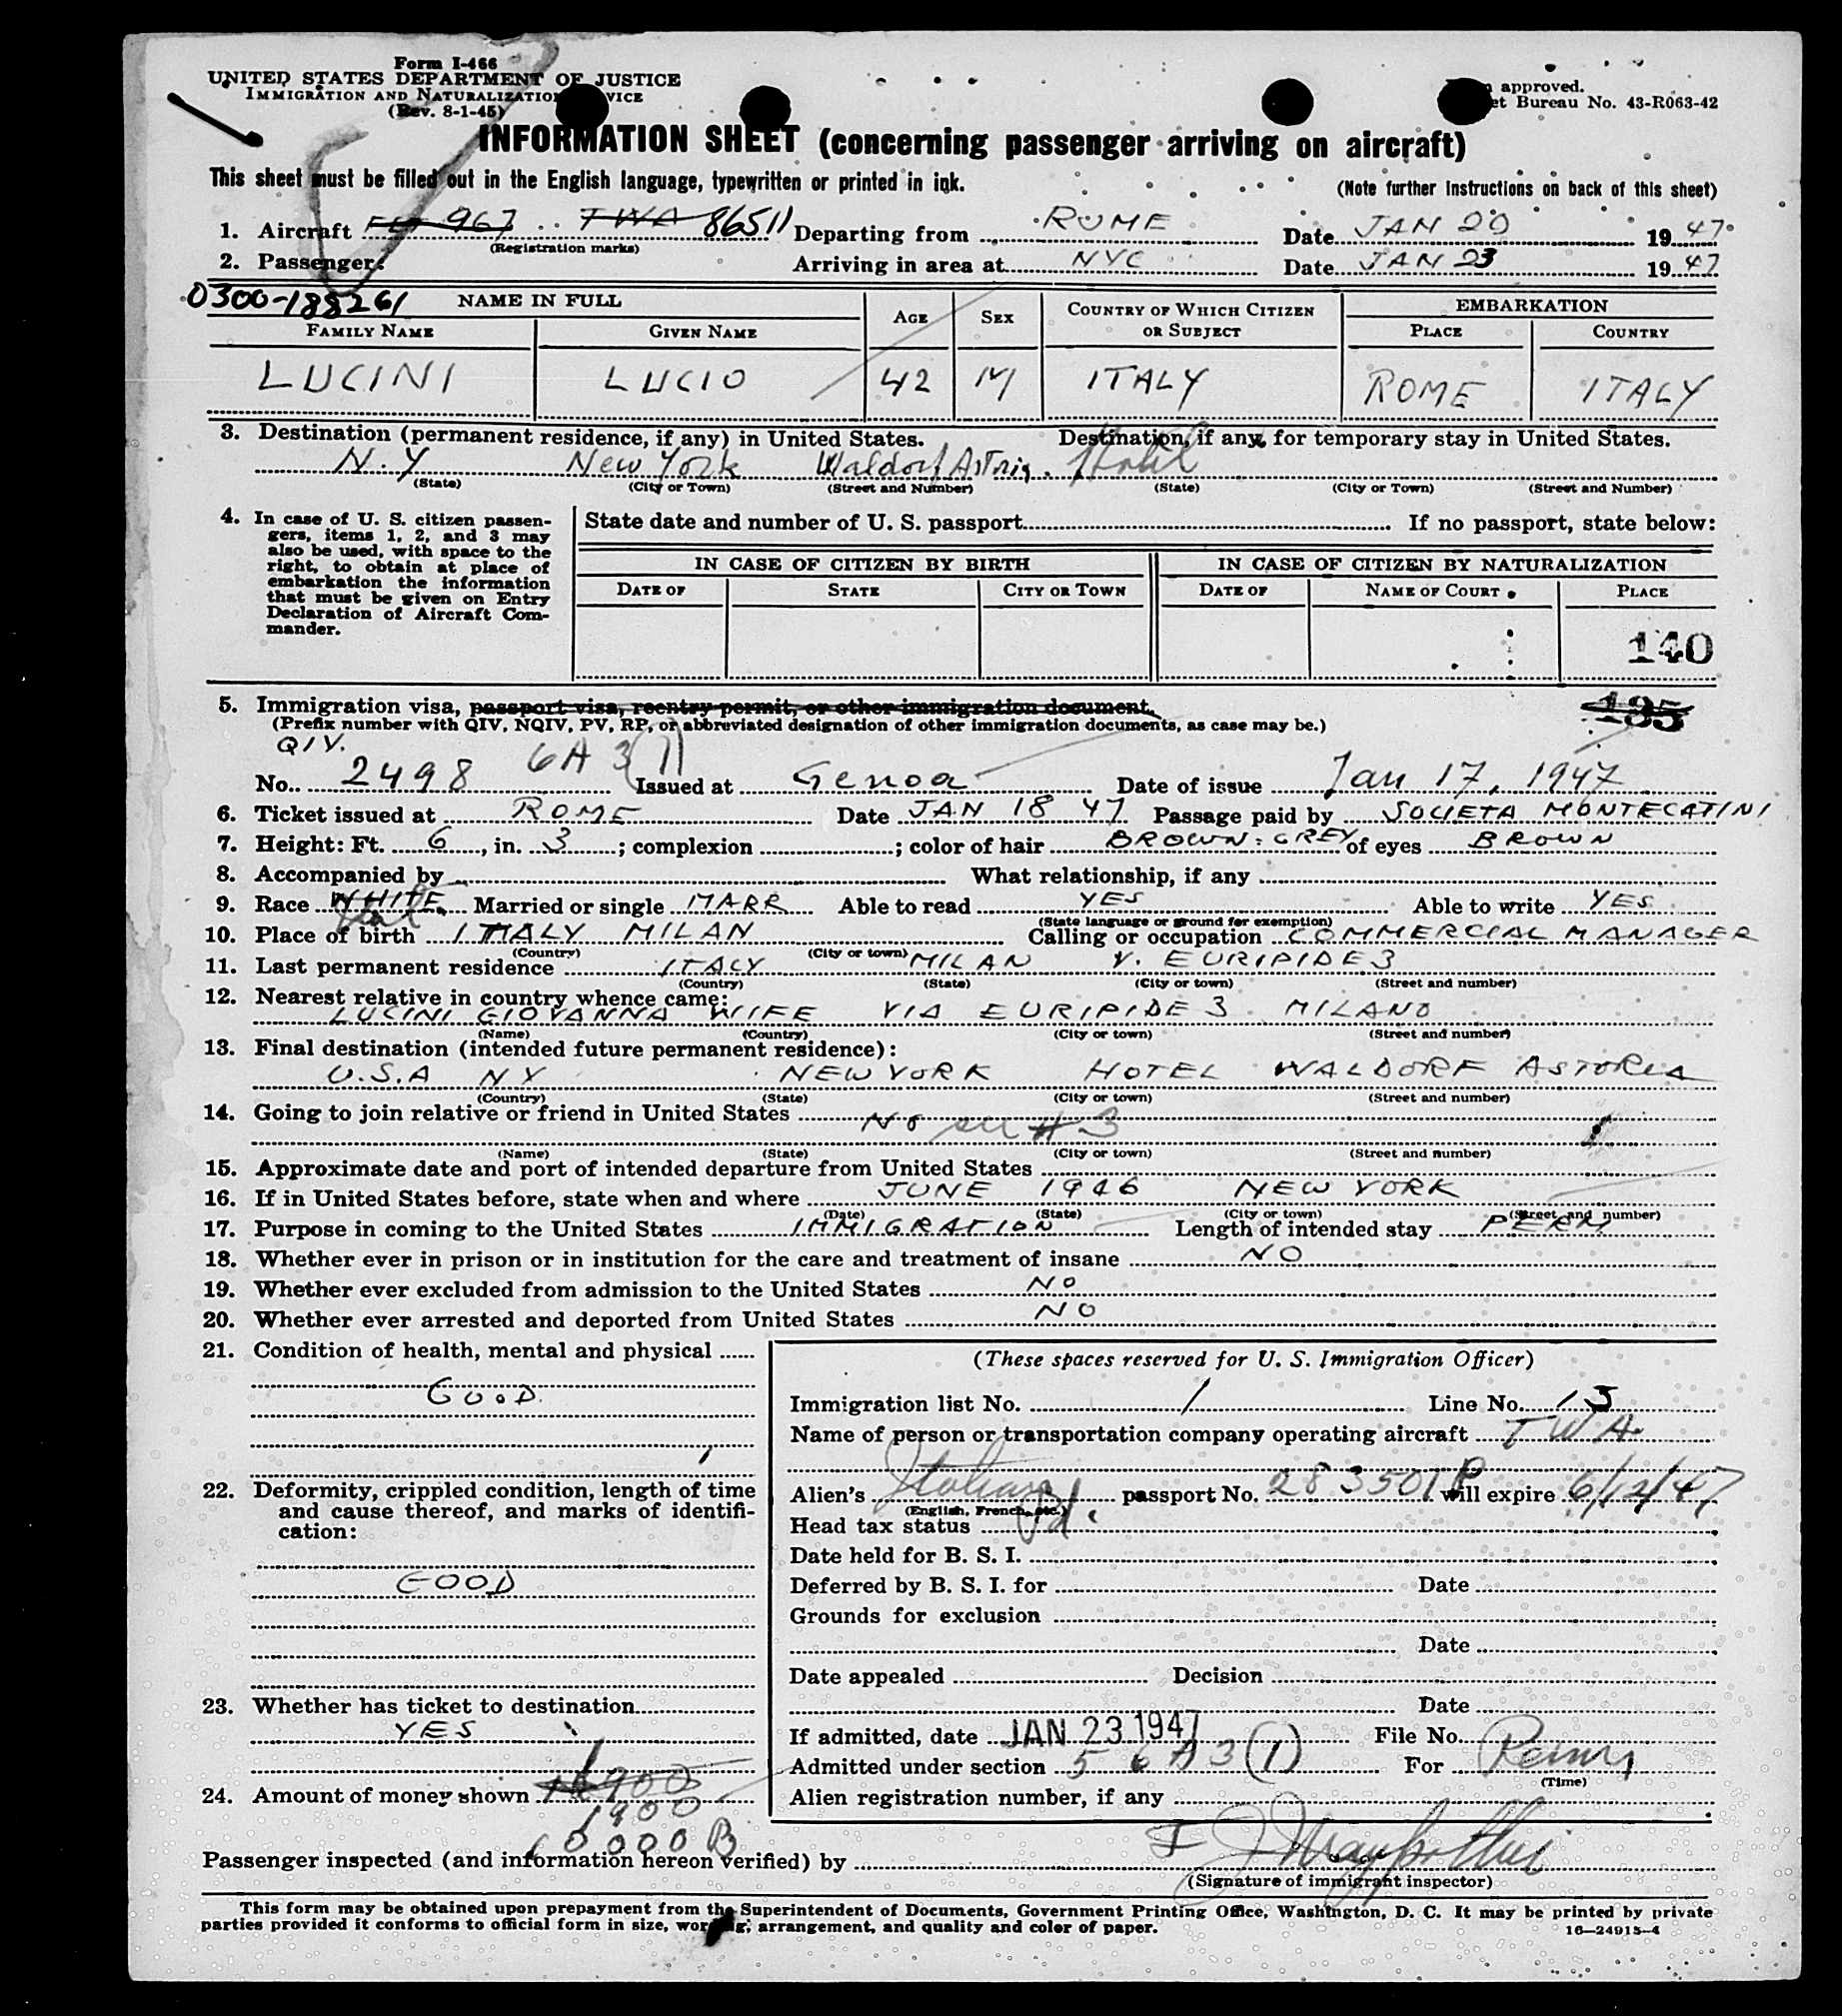 Form I-466
UNITED STATES DEPARTMENT OF JUSTICE
IMMIGRATION AND NATURALIZATION SERVICE
(Rev. 8-1-45)
approved.
et Bureau No. 43-R063-42
INFORMATION SHEET (concerning passenger arriving on aircraft)
This sheet must be filled out in the English language, typewritten or printed in ink.
(Note further instructions on back of this sheet)
1. Aircraft 967 TWA 86511 Departing from ROME Date JAN 20 1947
(Registration marks)
2. Passenger: Arriving in area at NYC Date JAN 23 1947
0300-188261 NAME IN FULL AGE SEX COUNTRY OF WHICH CITIZEN OR SUBJECT EMBARKATION
FAMILY NAME GIVEN NAME PLACE COUNTRY
LUCINI LUCIO 42 M ITALY ROME ITALY
3. Destination (permanent residence, if any) in United States. Destination, if any, for temporary stay in United States.
N.Y New York Waldorf Astoria. Hotel
(State) (City or Town) (Street and Number) (State) (City or Town) (Street and Number)
4. In case of U. S. citizen passen-
gers, items 1, 2, and 3 may
also be used, with space to the
right, to obtain at place of
embarkation the information
that must be given on Entry
Declaration of Aircraft Com-
mander.
State date and number of U. S. passport If no passport, state below:
IN CASE OF CITIZEN BY BIRTH IN CASE OF CITIZEN BY NATURALIZATION
DATE OF STATE CITY OR TOWN DATE OF NAME OF COURT PLACE
140
195
5. Immigration visa, passport visa, reentry permit, or other immigration document.
(Prefix number with QIV, NQIV, PV, RP, or abbreviated designation of other immigration documents, as case may be.)
QIV.
No. 2498 6A3(1) Issued at Genoa Date of issue Jan 17, 1947
6. Ticket issued at ROME Date JAN 18 47 Passage paid by SOCIETA MONTECATINI
7. Height: Ft. 6, in. 3; complexion ; color of hair BROWN: GREY of eyes BROWN
8. Accompanied by What relationship, if any
9. Race WHITE Married or single MARR Able to read YES Able to write YES
(State language or ground for exemption)
10. Place of birth ITALY MILAN Calling or occupation COMMERCIAL MANAGER
(Country) (City or town)
11. Last permanent residence ITALY MILAN V. EURIPIDE 3
(Country) (State) (City or town) (Street and number)
12. Nearest relative in country whence came:
LUCINI GIOVANNA WIFE VIA EURIPIDE 3 MILANO
(Name) (Country) (City or town) (Street and number)
13. Final destination (intended future permanent residence):
U.S.A NY NEW YORK HOTEL WALDORF ASTORIA
(Country) (State) (City or town) (Street and number)
14. Going to join relative or friend in United States No see # 3
(Name) (State) (City or town) (Street and number)
15. Approximate date and port of intended departure from United States
16. If in United States before, state when and where JUNE 1946 NEW YORK
(Date) (State) (City or town) (Street and number)
17. Purpose in coming to the United States IMMIGRATION Length of intended stay PERM
18. Whether ever in prison or in institution for the care and treatment of insane NO
19. Whether ever excluded from admission to the United States NO
20. Whether ever arrested and deported from United States NO
21. Condition of health, mental and physical
GOOD
22. Deformity, crippled condition, length of time
and cause thereof, and marks of identifi-
cation:
GOOD
23. Whether has ticket to destination
YES
24. Amount of money shown 1900
1900
10000
(These spaces reserved for U. S. Immigration Officer)
Immigration list No. 1 Line No. 13
Name of person or transportation company operating aircraft TWA
Alien's Italian passport No. 283501P will expire 6/12/47
(English, French, etc.)
Head tax status Pd.
Date held for B. S. I.
Deferred by B. S. I. for Date
Grounds for exclusion
Date
Date appealed Decision
Date
If admitted, date JAN 23 1947 File No.
Admitted under section 5 6A3(1) For Perm
(Time)
Alien registration number, if any
Passenger inspected (and information hereon verified) by
(Signature of immigrant inspector)
This form may be obtained upon prepayment from the Superintendent of Documents, Government Printing Office, Washington, D. C. It may be printed by private
parties provided it conforms to official form in size, wording, arrangement, and quality and color of paper.
16—24915-4